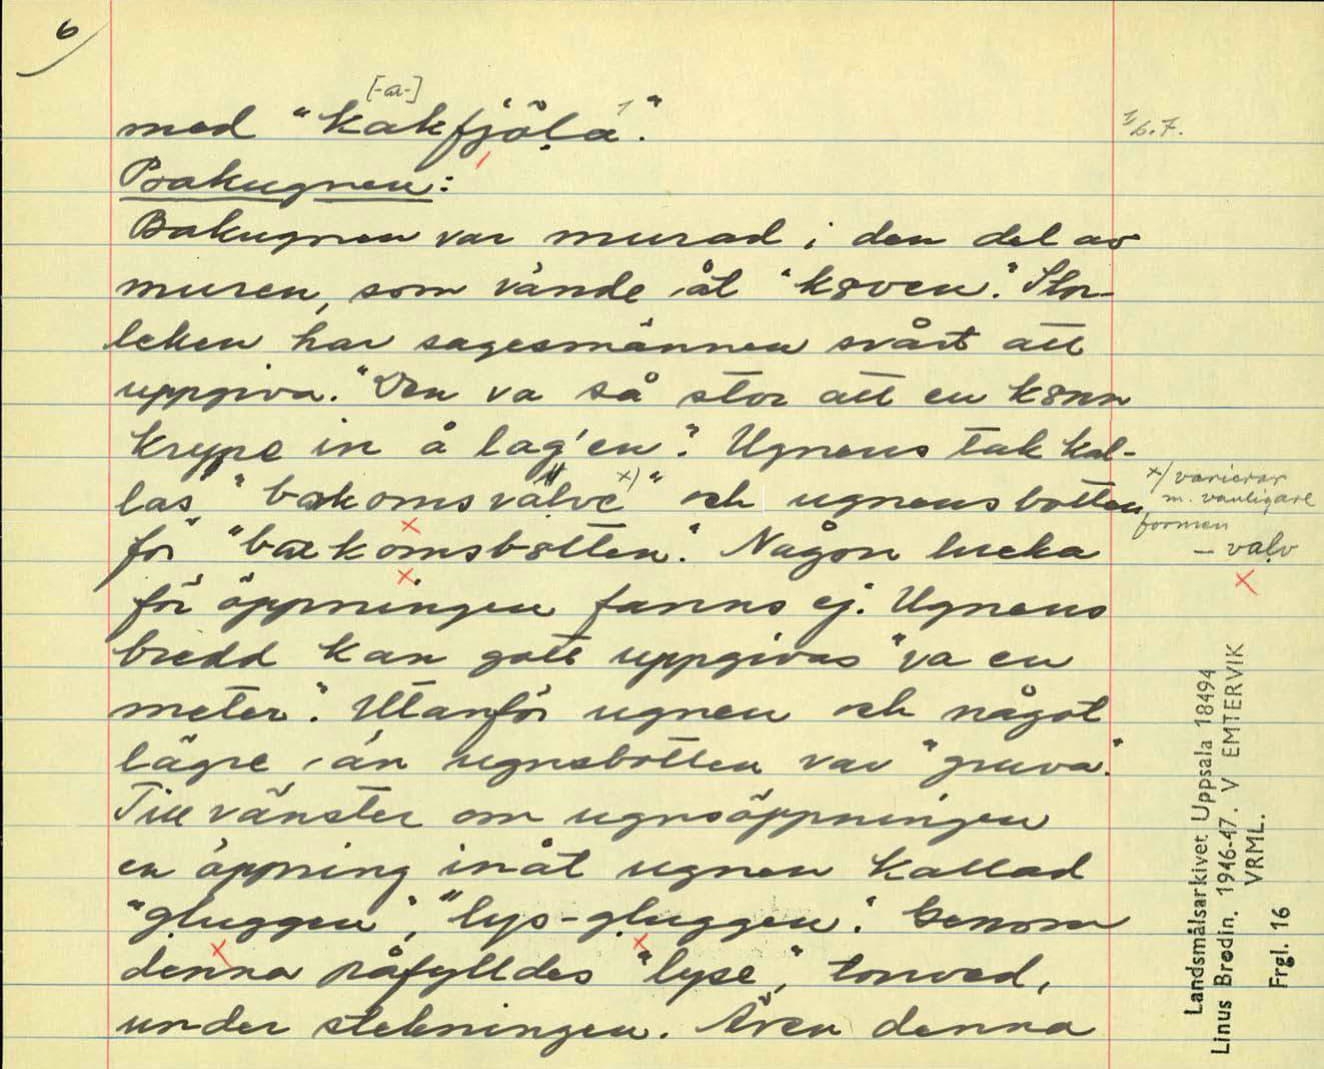 6
[-a-]
med "kakfjöḷa". 1
1/ 6.7.
Bakugnen:
Bakugnen var murad i den del av
muren, som vände åt "k8ven". Stor-
leken har sagesmännen svårt att
uppgiva. "Den va så stor att en k8nn
krype in å lag'en". Ugnens tak kal-
las "bakomsvälve x)" och ugnens botten
x/ varierar
m. vanligare
formen
– valv
för "bakomsb8tten". Någon lucka
för öppningen fanns ej. Ugnens
bredd kan gott uppgivas "va en
meter". Utanför ugnen och något
lägre än ugnsbotten var "gruva".
Till vänster om ugnsöppningen
en öppning inåt ugnen kallad
"gluggen", "lys-gluggen". Genom
denna påfylldes "lyse", torrved,
under stekningen. Även denna
Landsmålsarkivet Uppsala 18494
Linus Brodin. 1946-47. V EMTERVIK
VRML.
Frgl. 16